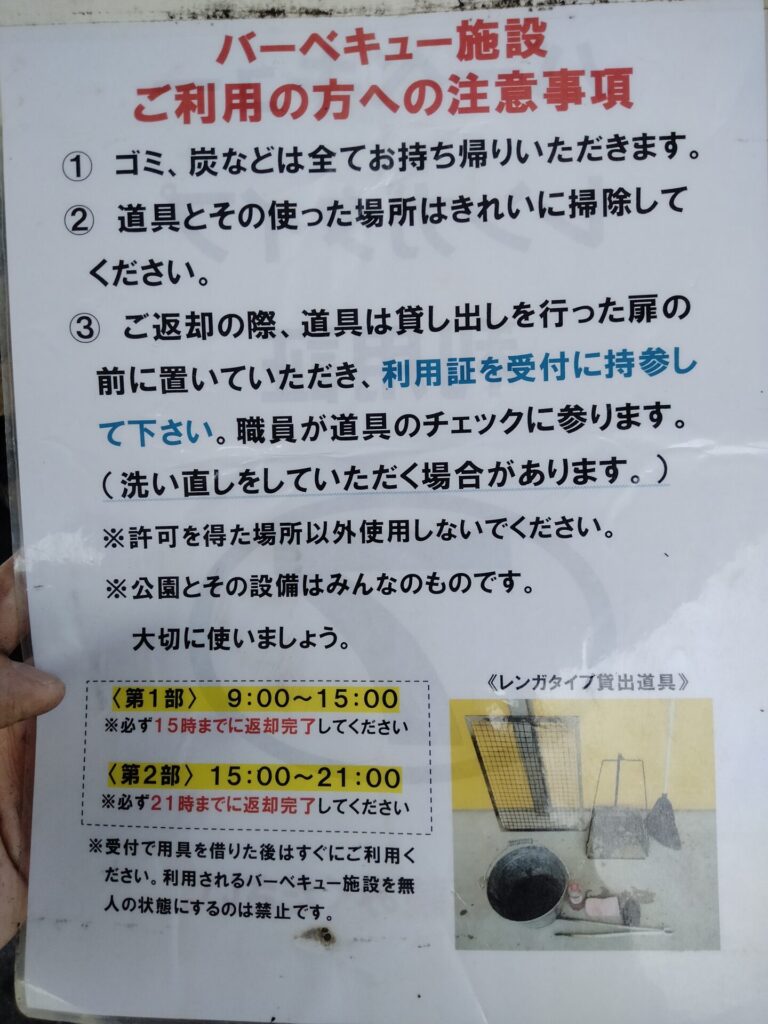 バーベキュー施設
ご利用の方への注意事項
① ゴミ、炭などは全てお持ち帰りいただきます。
② 道具とその使った場所はきれいに掃除して
ください。
③ ご返却の際、道具は貸し出しを行った扉の
前に置いていただき、利用証を受付に持参し
て下さい。職員が道具のチェックに参ります。
(洗い直しをしていただく場合があります。)
※許可を得た場所以外使用しないでください。
※公園とその設備はみんなのものです。
大切に使いましょう。
〈第1部〉 9:00~15:00
※必ず15時までに返却完了してください
〈第2部〉 15:00~21:00
※必ず21時までに返却完了してください
※受付で用具を借りた後はすぐにご利用く
ださい。利用されるバーベキュー施設を無
人の状態にするのは禁止です。
《レンガタイプ貸出道具》